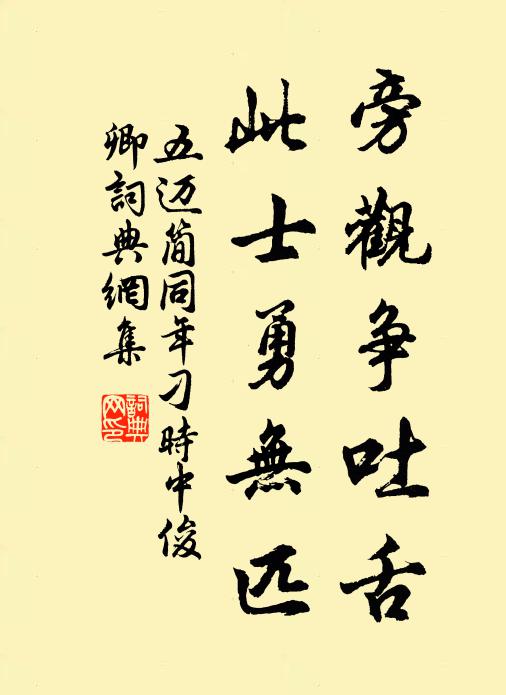 旁觀争吐舌
此士勇無匹
五迈简同年刁時中俊
卿詞典網集
詞典
网印